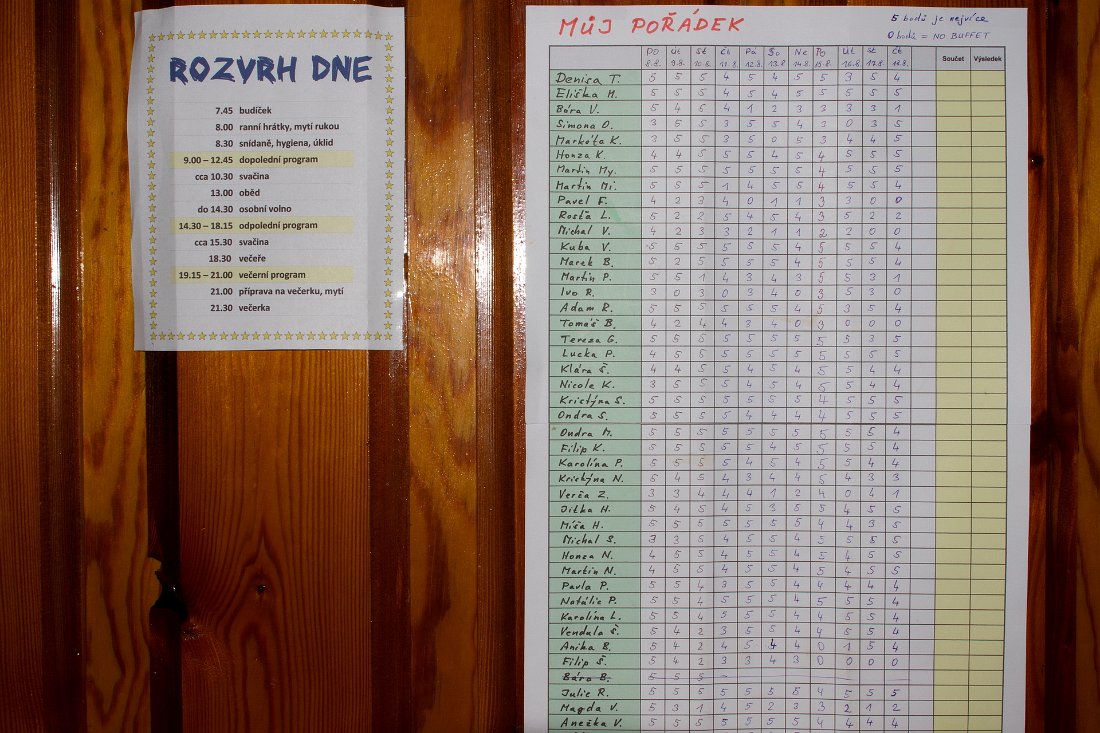 ROZVRH DNE
7.45 budíček
8.00 ranní hrátky, mytí rukou
8.30 snídaně, hygiena, úklid
9.00 – 12.45 dopolední program
cca 10.30 svačina
13.00 oběd
do 14.30 osobní volno
14.30 – 18.15 odpolední program
cca 15.30 svačina
18.30 večeře
19.15 – 21.00 večerní program
21.00 příprava na večerku, mytí
21.30 večerka
MŮJ POŘÁDEK
5 bodů je nejvíce
0 bodů = NO BUFFET
PO Út St Čt Pá So Ne Po Út St Čt
8.8. 9.8. 10.8. 11.8. 12.8. 13.8. 14.8. 15.8. 16.8. 17.8. 18.8. Součet Výsledek
Denisa T. 5 5 5 4 5 4 5 5 3 5 4
Eliška M. 5 5 5 4 5 4 5 5 5 5 5
Bára V. 5 4 5 4 1 2 3 3 3 3 1
Simona O. 3 5 5 3 5 5 4 0 3 5
Markéta K. 3 5 5 3 5 0 5 3 4 4 5
Honza K. 4 4 5 5 5 4 5 4 5 5 5
Martin My. 5 5 5 5 5 5 5 4 5 5 5
Martin Mi. 5 5 5 1 4 5 5 4 5 5 4
Pavel F. 4 2 3 4 0 1 1 3 3 0 0
Rosťa L. 5 2 2 5 4 5 4 3 5 2 2
Michal V. 4 2 3 3 2 1 1 2 2 0 0
Kuba V. 5 5 5 5 5 5 4 5 5 5 4
Marek B. 5 2 5 5 5 5 4 5 5 5 4
Martin P. 5 5 1 4 3 4 3 5 5 3 1
Ivo R. 3 0 3 0 3 4 0 3 5 3 0
Adam R. 5 5 5 5 5 5 4 5 3 5 4
Tomáš B. 4 2 4 4 3 4 0 3 0 0 0
Tereza G. 5 5 5 5 5 5 5 5 5 3 5
Lucka P. 4 5 5 5 5 5 5 5 5 5 5
Klára Š. 4 4 5 5 4 5 4 5 5 4 4
Nicole K. 3 5 5 5 4 5 4 5 5 4 4
Kristýna S. 5 5 5 5 5 5 5 4 5 5 5
Ondra S. 5 5 5 5 4 4 4 4 5 5 5
Ondra M. 5 5 5 5 5 5 5 5 5 5 4
Filip K. 5 5 5 5 5 4 5 5 5 5 4
Karolína P. 5 5 5 5 4 5 4 5 5 4 4
Kristýna N. 5 4 5 4 3 4 4 5 4 3 3
Verča Z. 3 3 4 4 4 1 2 4 0 4 1
Jitka H. 5 4 5 4 5 3 5 5 4 5 5
Míša H. 5 5 5 5 5 5 5 4 4 3 5
Michal S. 3 3 5 4 5 5 4 5 5 5 5
Honza N. 4 5 5 4 5 5 4 5 4 5 5
Martin N. 4 5 5 4 5 5 4 5 4 5 5
Pavla P. 5 5 4 3 5 5 4 4 4 4 4
Natálie P. 5 5 4 5 5 5 4 5 5 5 4
Karolína L. 5 5 4 5 5 5 4 4 5 5 4
Vendula Š. 5 4 2 3 5 5 4 4 5 5 4
Anika B. 5 4 2 4 5 4 4 0 1 5 4
Filip Š. 5 4 2 3 3 4 3 0 0 0 0
Bára B. 5 5 5
Julie R. 5 5 5 5 5 5 5 4 5 5 5
Magda V. 5 3 1 4 5 2 3 3 2 1 2
Anežka V. 5 5 5 5 5 5 5 4 4 4 4